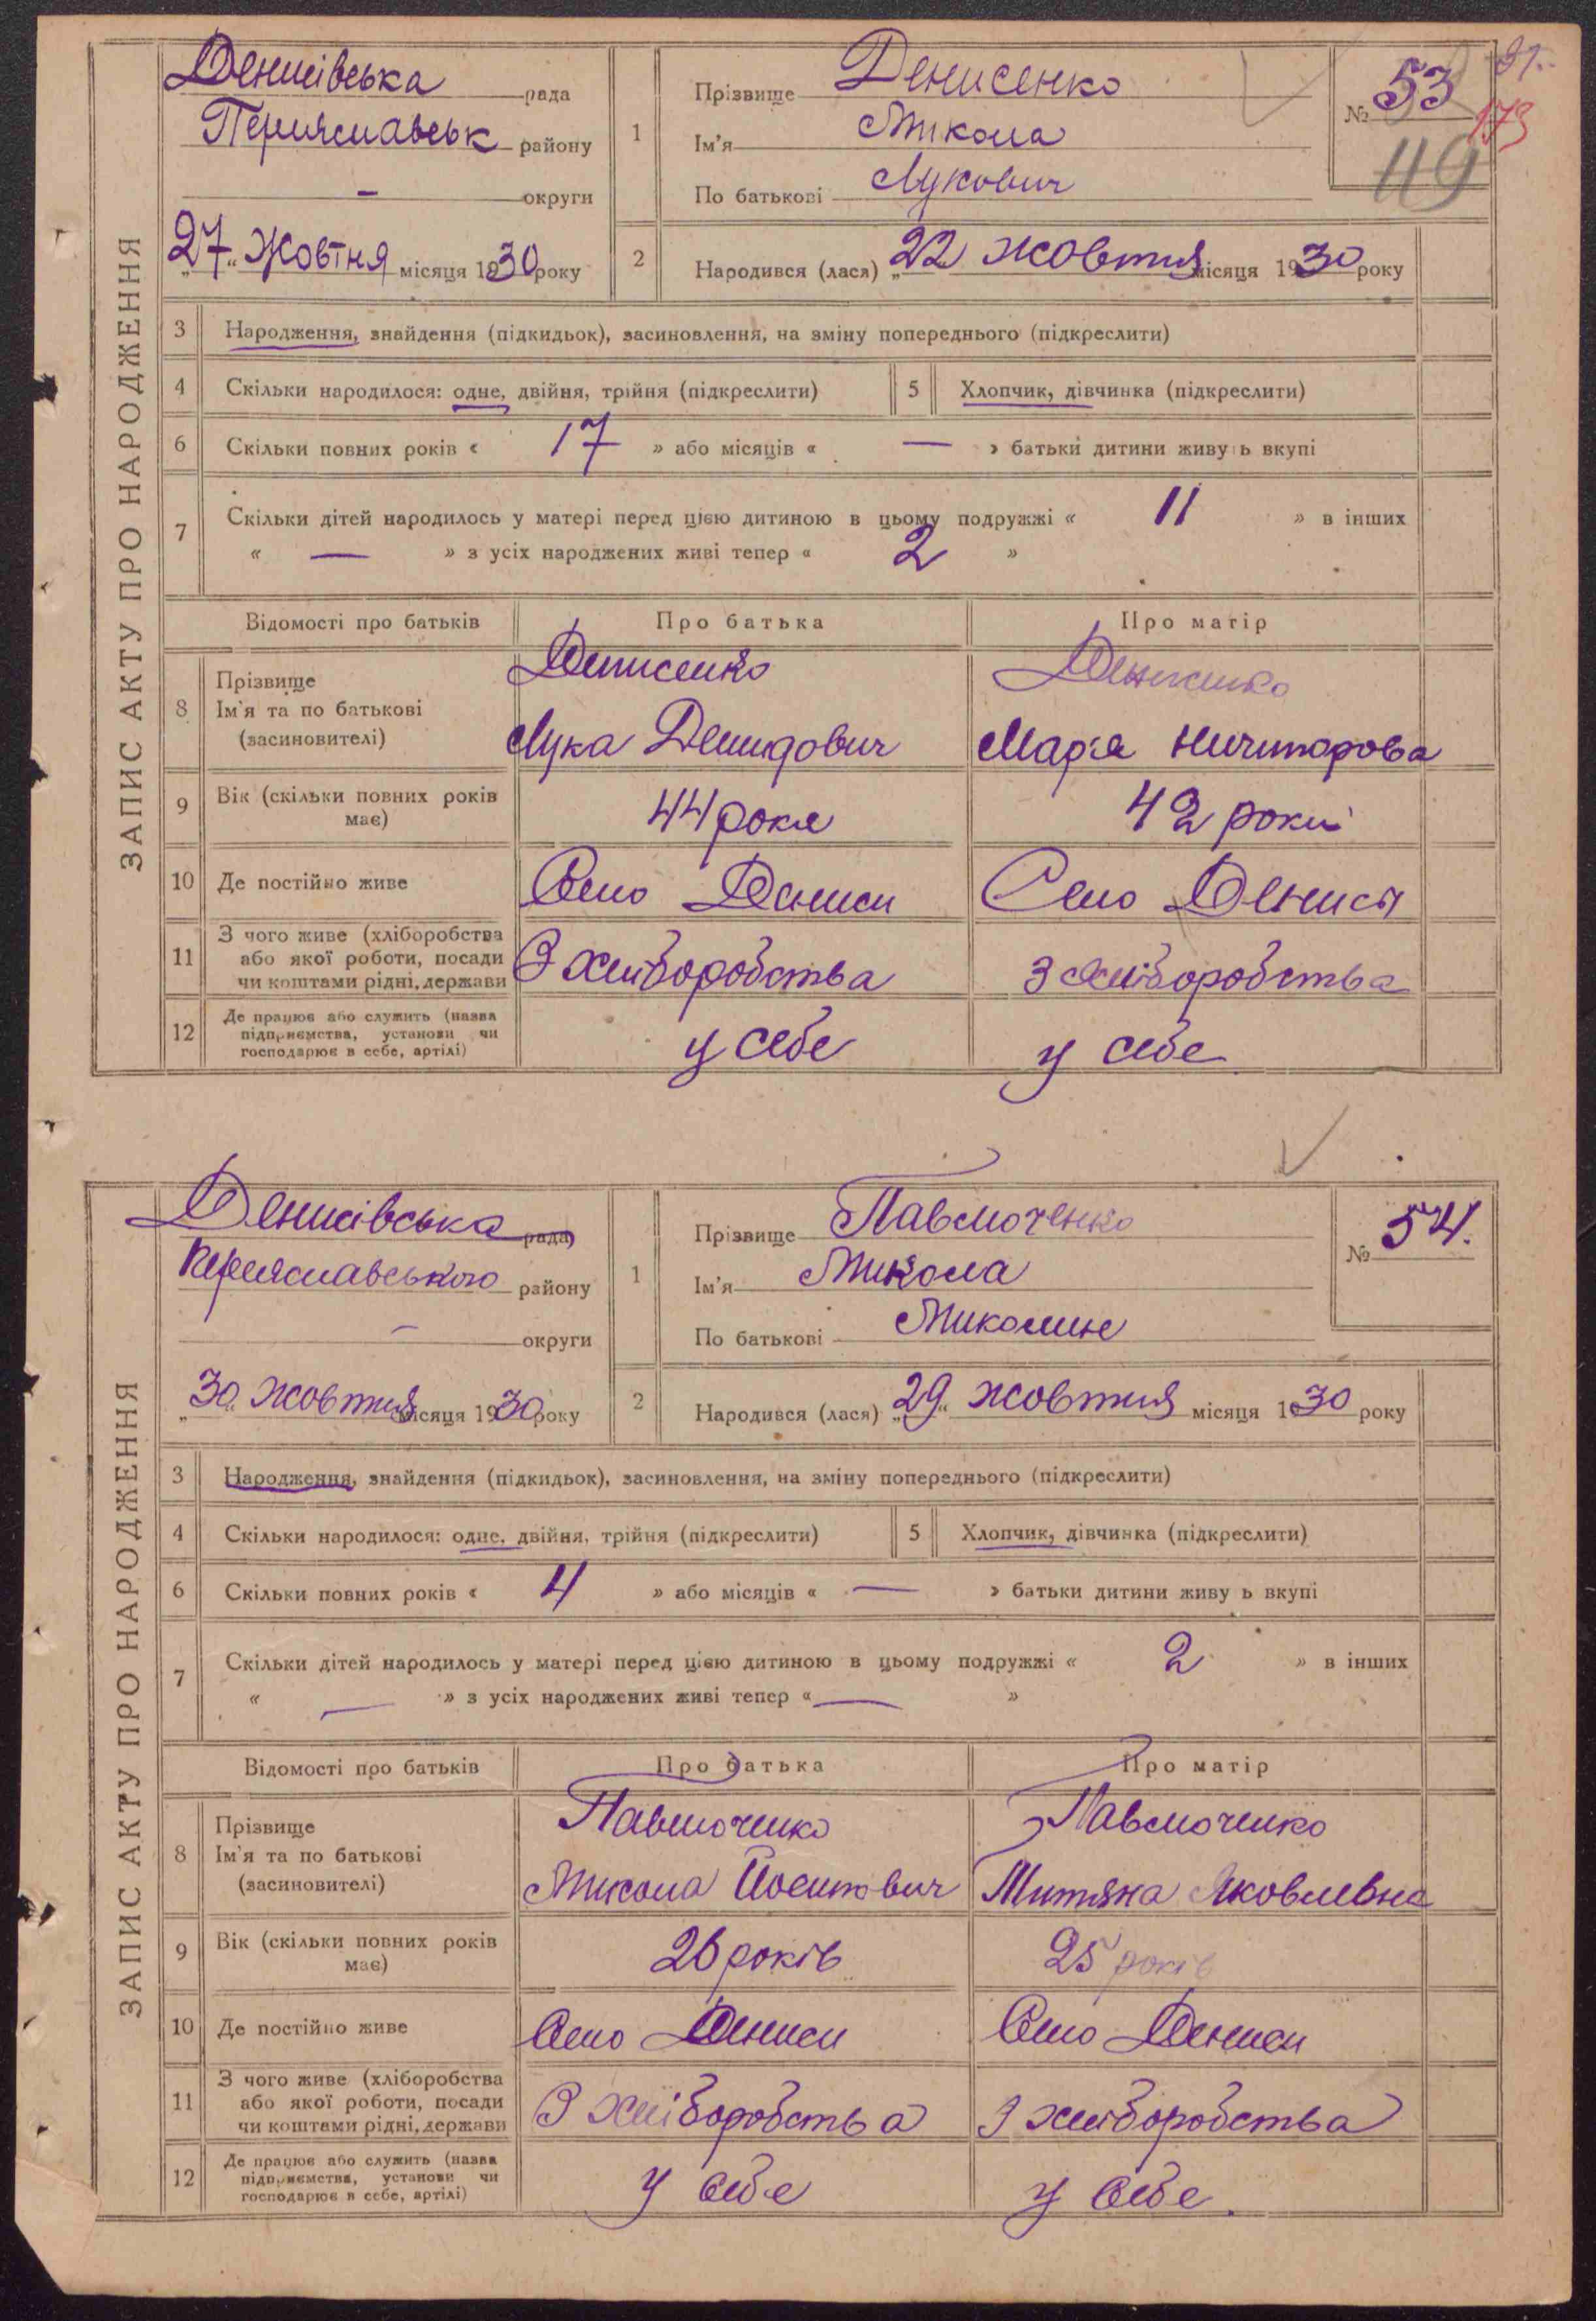 ЗАПИС АКТУ ПРО НАРОДЖЕННЯ
Денисівська рада
Переяславськ району
— округи
„27“ Жовтня місяця 1930 року
1
Прізвище Денисенко
Ім'я Микола
По батькові Лукович
№ 53
91.
173
119
2
Народився (лася) „22 жовтня місяця 1930 року
3 Народження, знайдення (підкидьок), засиновлення, на зміну попереднього (підкреслити)
4 Скільки народилося: одне, двійня, трійня (підкреслити) 5 Хлопчик, дівчинка (підкреслити)
6 Скільки повних років « 17 » або місяців « — » батьки дитини живу ь вкупі
7 Скільки дітей народилось у матері перед цією дитиною в цьому подружжі « 11 » в інших
« — » з усіх народжених живі тепер « 2 »
Відомості про батьків Про батька Про матір
8 Прізвище Денисенко Денисенко
Ім'я та по батькові
(засиновителі) Лука Демидович Мар'я Ничипорова
9 Вік (скільки повних років має) 44 роки 42 роки
10 Де постійно живе Село Дениси Село Дениси
11 З чого живе (хліборобства
або якої роботи, посади
чи коштами рідні, держави З хліборобства З хліборобства
12 Де працює або служить (назва
підприємства, установи чи
господарює в себе, артілі) у себе у себе
ЗАПИС АКТУ ПРО НАРОДЖЕННЯ
Денисівська рада
Переяславського району
— округи
„30“ жовтня місяця 1930 року
1
Прізвище Павлюченко
Ім'я Микола
По батькові
№ 54.
2
Народився (лася) „29“ жовтня місяця 1930 року
3 Народження, знайдення (підкидьок), засиновлення, на зміну попереднього (підкреслити)
4 Скільки народилося: одне, двійня, трійня (підкреслити) 5 Хлопчик, дівчинка (підкреслити)
6 Скільки повних років « 4 » або місяців « — » батьки дитини живу ь вкупі
7 Скільки дітей народилось у матері перед цією дитиною в цьому подружжі « 2 » в інших
« — » з усіх народжених живі тепер « — »
Відомості про батьків Про батька Про матір
8 Прізвище Павлюченко Павлюченко
Ім'я та по батькові
(засиновителі) Микола Йосипович Яковлевна
9 Вік (скільки повних років має) 26 років 25 років
10 Де постійно живе Село Дениси Село Дениси
11 З чого живе (хліборобства
або якої роботи, посади
чи коштами рідні, держави З хліборобства З хліборобства
12 Де працює або служить (назва
підприємства, установи чи
господарює в себе, артілі) у себе у себе.